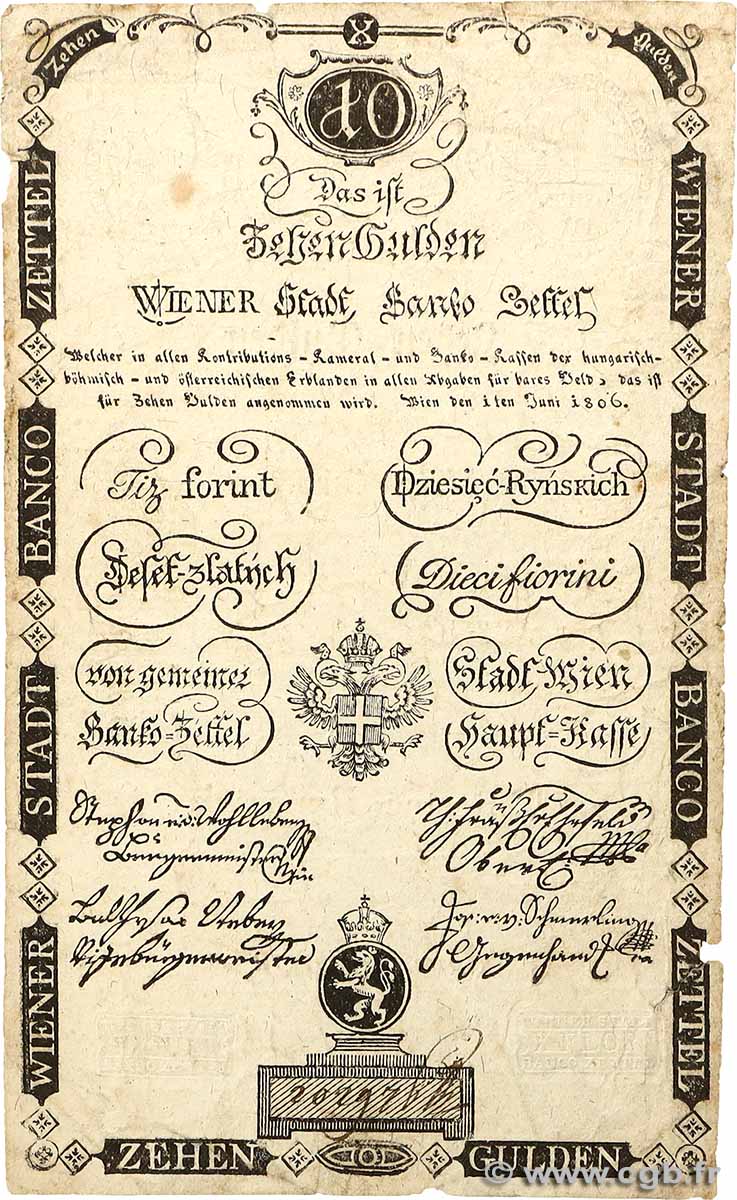 Zehen
X
Gulden
10
Das ist
Zehen Gulden
WIENER Stadt Banko Zettel
Welcher in allen Kontributions - Kameral - und Banko - Kassen der hungarisch-
böhmisch - und österreichischen Erblanden in allen Abgaben für bares Geld, das ist
für Zehen Gulden angenommen wird. Wien den 1ten Juni 1806.
Tiz forint
Dziesięć-Ryńskich
Deset-zlatých
Dieci fiorini
von gemeiner
Stadt-Wien
Banko-Zettel
Haupt-Kasse
Stephan
Bürgermeister
Balthasar
Vizebürgermeister
Jos: v. Schmerling
Gegenhand
WIENER STADT BANCO ZETTEL
WIENER STADT BANCO ZETTEL
ZEHEN
10
GULDEN
© www.cgb.fr